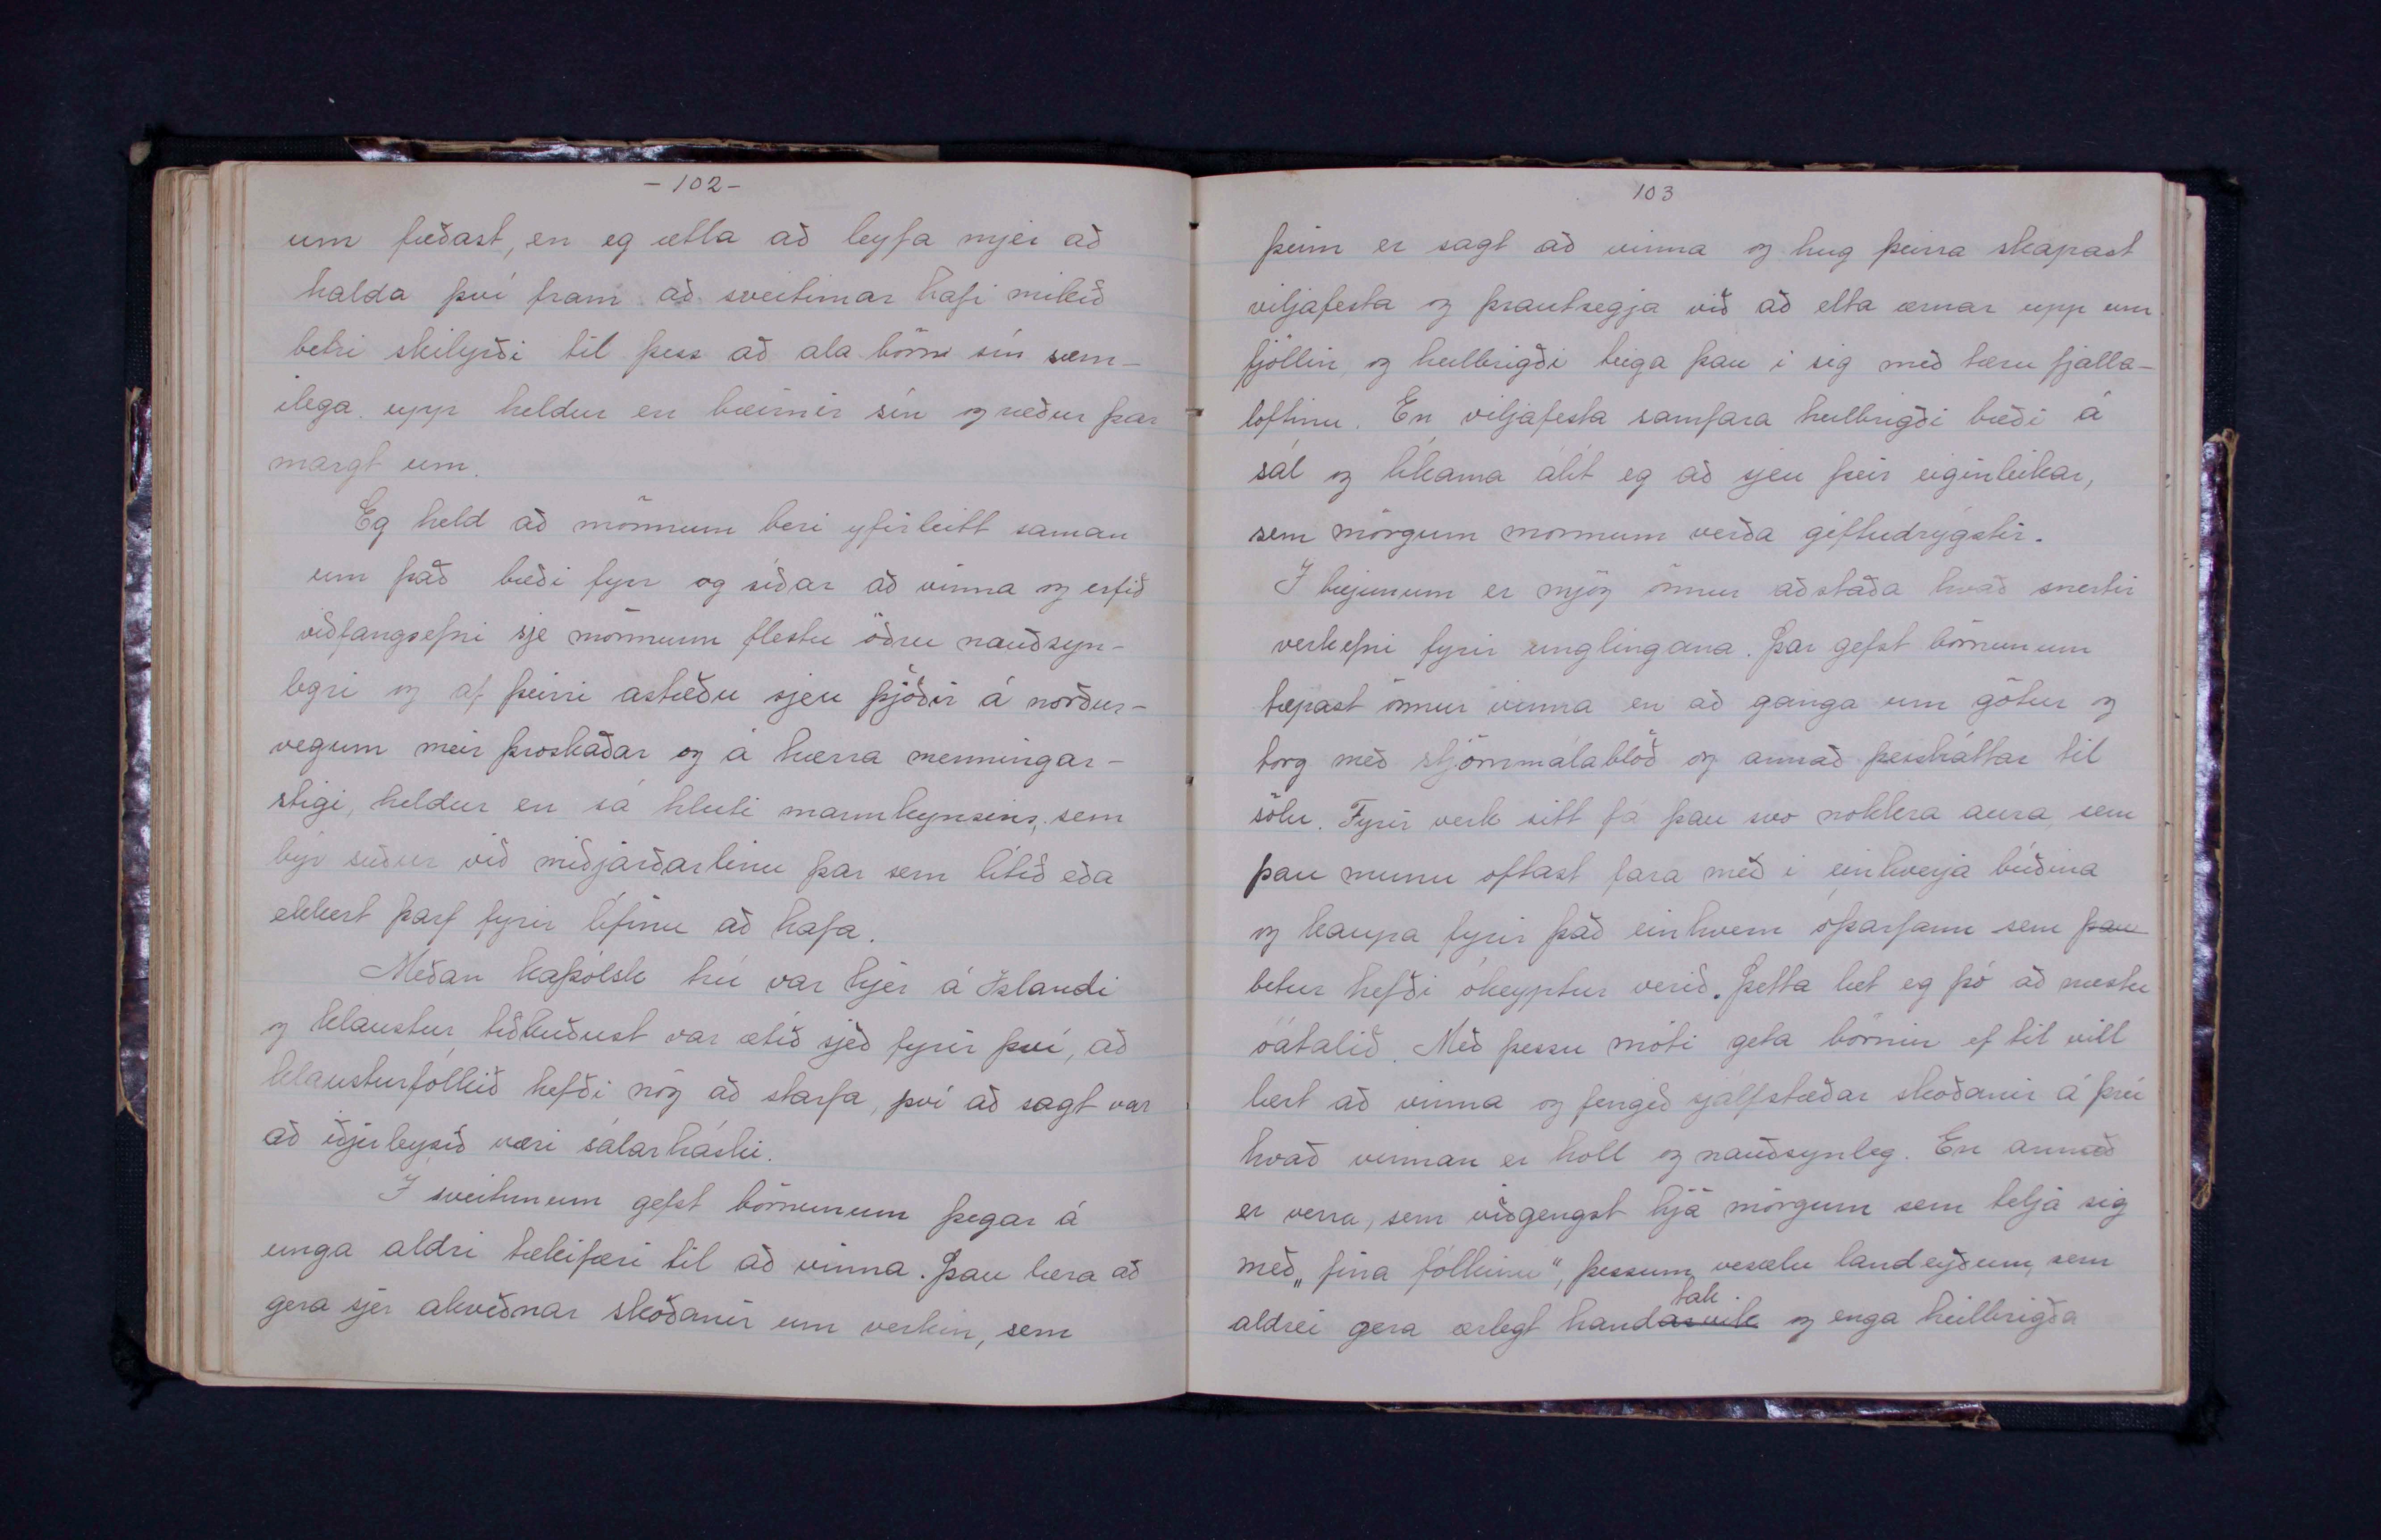 - 102 -
um fæðast, en eg ætla að leyfa mjer að
halda því fram að sveitirnar hafi mikið
betri skilyrði til þess að ala börn sín sæm-
ilega upp heldur en bæirnir sín og ræður þar
margt um.
Eg held að mönnum beri yfirleitt saman
um það bæði fyr og síðar að vinna og erfið
viðfangsefni sje mönnum flestu öðru nauðsyn-
legri og af þeirri astæðu sjeu þjóðir á norður-
vegum meir þroskaðar og á hærra menningar-
stigi, heldur en sá hluti mannkynsins, sem
býr suður við miðjarðarlínu þar sem lítið eða
ekkert þarf fyrir lífinu að hafa.
Meðan kaþólsk trú var hjer á Íslandi
og klaustur tíðkuðust var ætíð sjeð fyrir því, að
klausturfólkið hefði nóg að starfa, því að sagt var
að iðjuleysið væri sálarháski.
I sveitunum gefst börnunum þegar á
unga aldri tækifæri til að vinna. Þau læra að
gera sjer akveðnar skoðanir um verkin, sem
103
þeim er sagt að vinna og hug þeirra skapast
viljafesta og þrautsegja við að elta ærnar upp um
fjöllin, og heilbrigði teiga þau í sig með tæru fjalla-
loftinu. En viljafesta samfara heilbrigði bæði á
sál og líkama álít eg að sjeu þeir eiginleikar,
sem mörgum mönnum verða giftudrýgstir.
I bæjunum er mjög önnur aðstaða hvað snertir
verkefni fyrir unglingana. Þar gefst börnunum
tæpast önnur vinna en að ganga um götur og
torg með stjórnmálablöð og annað þessháttar til
sölu. Fyrir verk sitt fá þau svo nokkra aura, sem
þau munu oftast fara með í einhverja búðina
og kaupa fyrir það einhvern óþarfann sem þau
betur hefði ókeyptur verið. Þetta læt eg þó að mestu
óátalið. Með þessu móti geta börnin ef til vill
lært að vinna og fengið sjálfstæðar skoðanir á því
hvað vinnan er holl og nauðsynleg. En annað
er verra, sem viðgengst hjá mörgum sem telja sig
með „fína fólkinu“, þessum vesælu landeyðum, sem
tak
aldrei gera ærlegt handarvik og enga heilbrigða